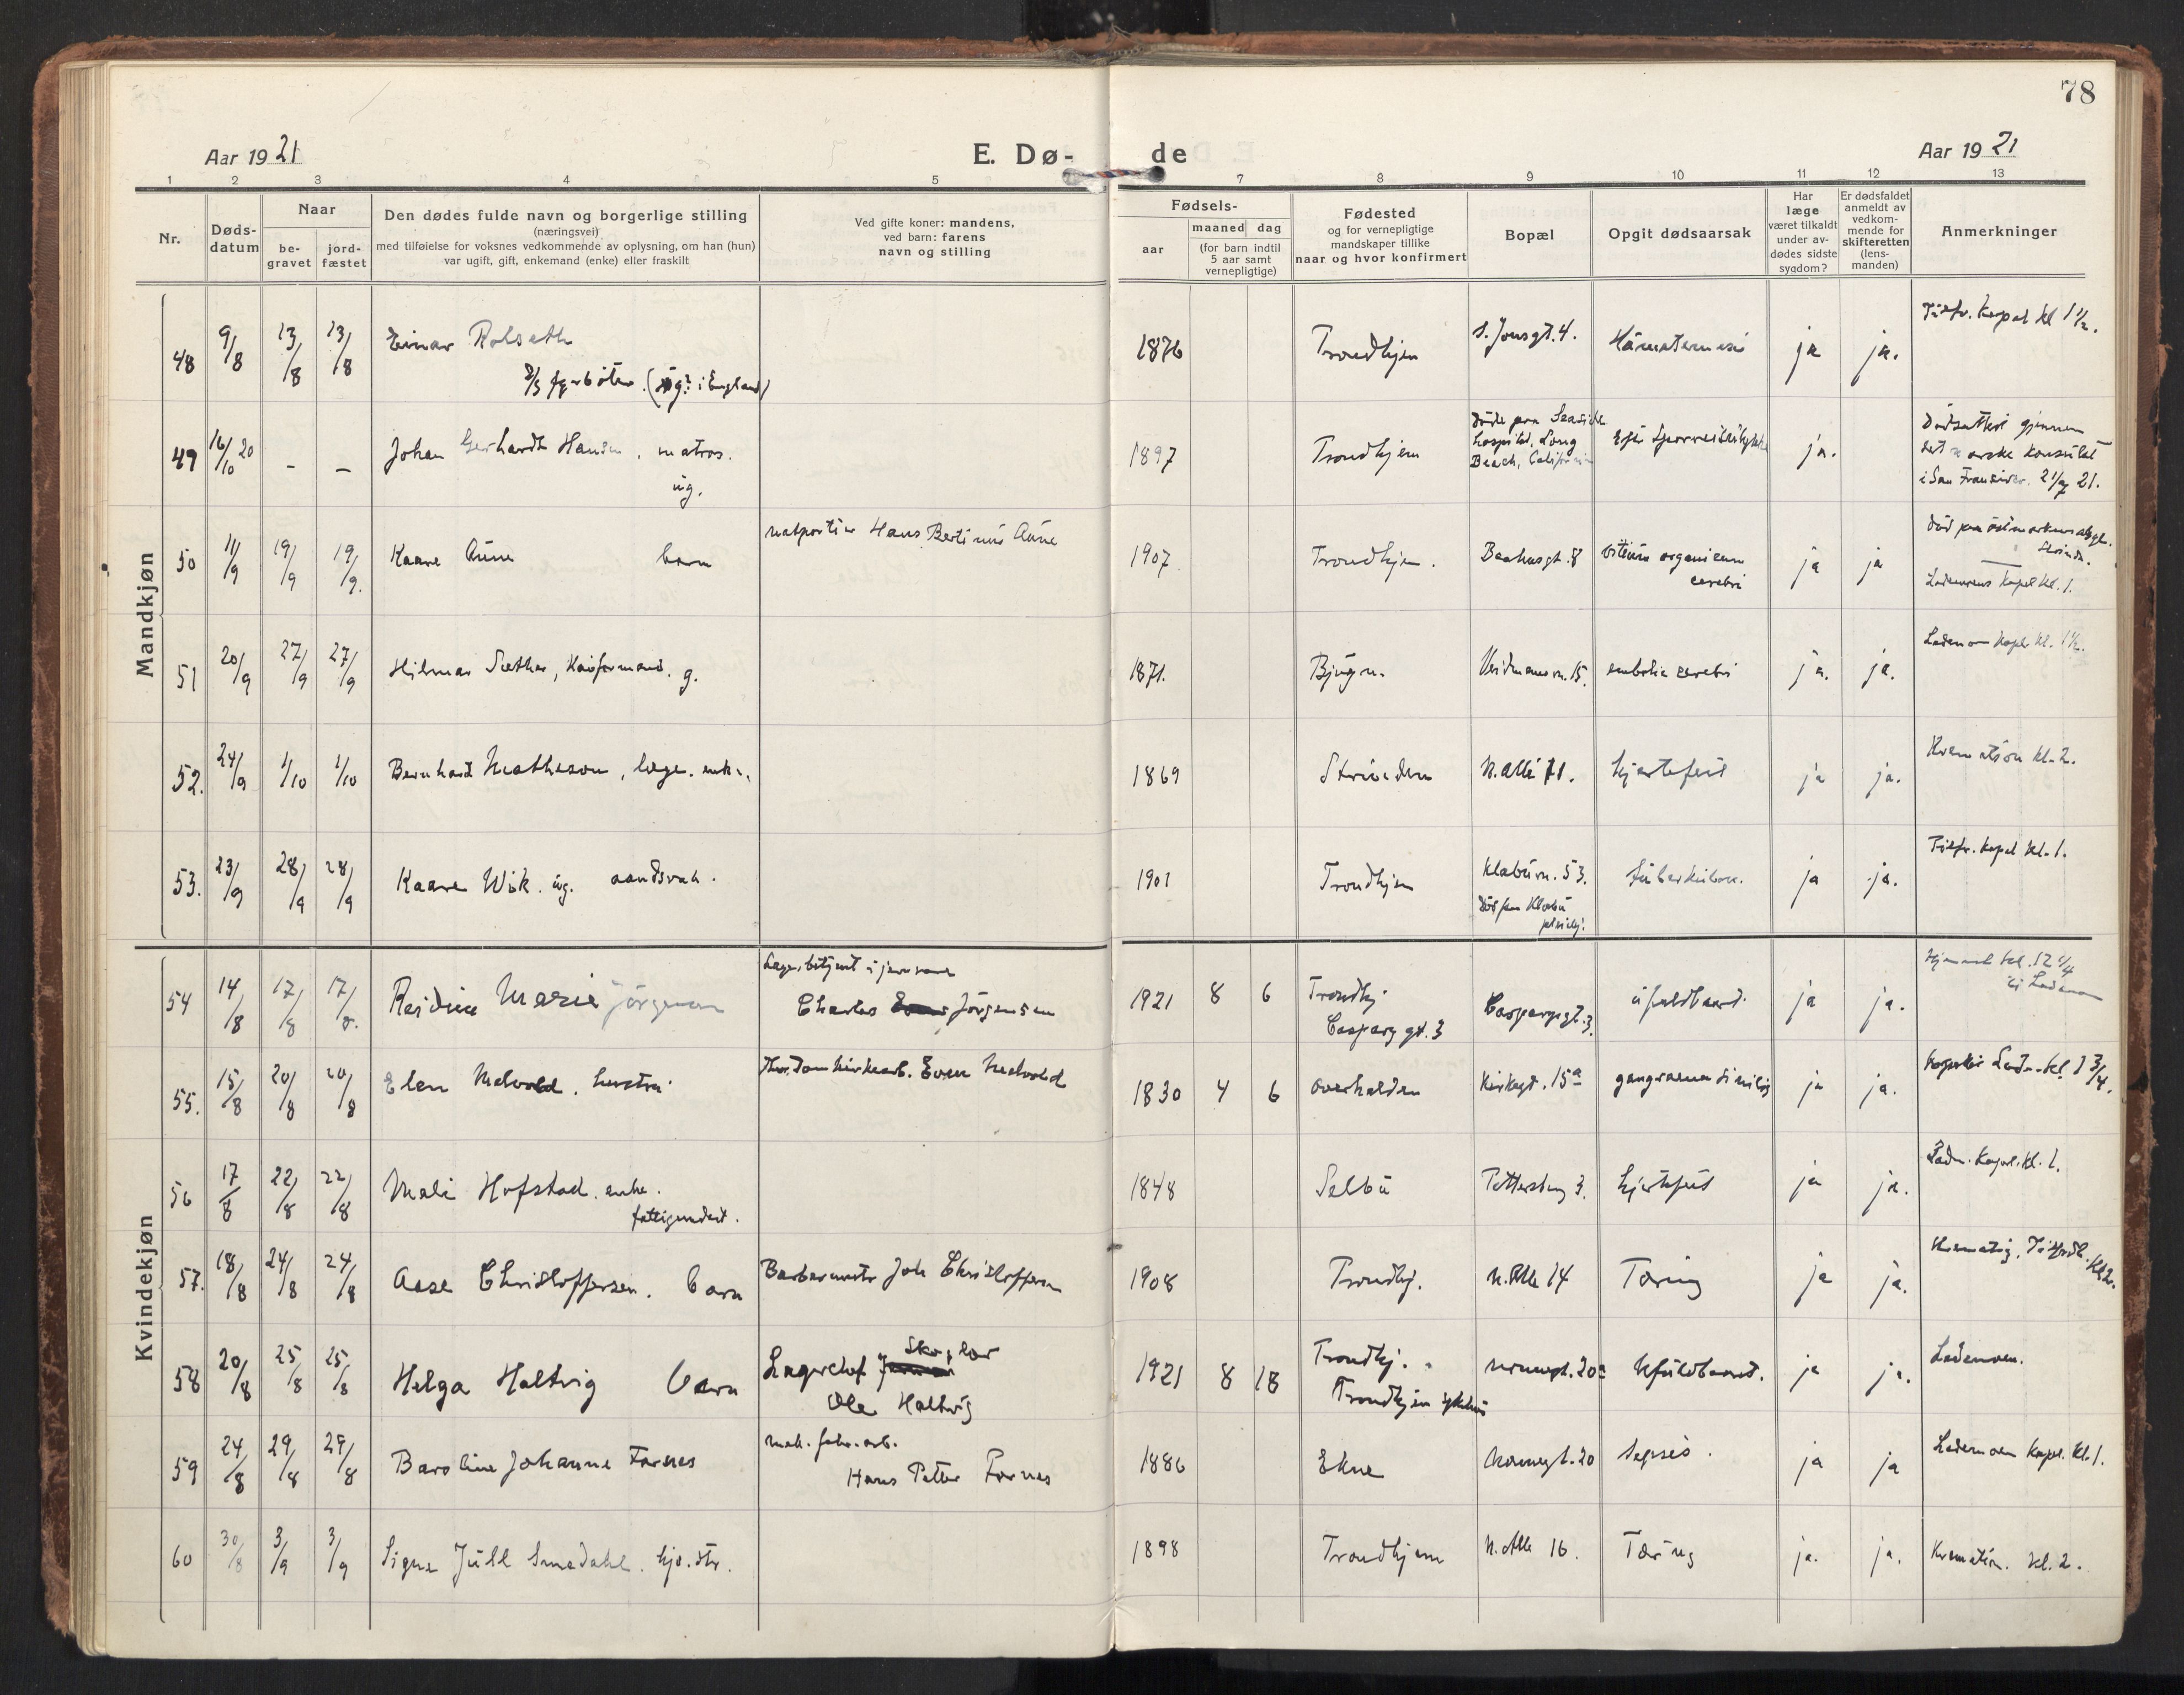 78
Aar 1921
E. Dø-
de
Aar 1921
1 2 3 4 5 7 8 9 10 11 12 13
Nr.
Døds-
datum
Naar
be-
gravet
jord-
fæstet
Den dødes fulde navn og borgerlige stilling
(næringsvei)
med tilføielse for voksnes vedkommende av oplysning, om han (hun)
var ugift, gift, enkemand (enke) eller fraskilt
Ved gifte koner: mandens,
ved barn: farens
navn og stilling
Fødsels-
aar
maaned dag
(for barn indtil
5 aar samt
vernepligtige)
Fødested
og for vernepligtige
mandskaper tillike
naar og hvor konfirmert
Bopæl
Opgit dødsaarsak
Har
læge
været tilkaldt
under av-
dødes sidste
sygdom?
Er dødsfaldet
anmeldt av
vedkom-
mende for
skifteretten
(lens-
manden)
Anmerkninger
Mandkjøn
48 9/8 13/8 13/8 Einar Rolseth
fyrbøter. (ug? i England)
1876 Trondhjem Hämatemesi ja ja.
kapel kl 1 1/2.
49 16/10 20 - - Johan Gerhardt Hansen, matros.
ug.
1897 Trondhjem
Døde paa Seaside
hospital, Long
Beach, California
ja.
gjennem
det norske konsulat
i San Francisco 21.
50 11/9 19/9 19/9. Kaare Aune barn
natportier Hans Bertinus Aune
1907. Trondhjem. Baahusgt. 8 vitium organicum
cerebri
ja ja
Lademoens Kapel kl. 1.
51 20/9 27/9 27/9 Hilmar Sæther, Kaiformand. g.
1871. Bjugn. 15. embolia cerebri ja. ja.
Kapel kl. 1 1/2.
52. 24/9 1/10 1/10 Bernhard Matheson, læge. enkem.
1869 Strinden N. Alle 71. hjertefeil ja ja.
Kremation kl. 2.
53. 23/9 28/9 28/9 Kaare Wik. ug. aandsvak.
1901 Trondhjem Klæbuv. 53.
Død paa Klæbu
pleiehj.
tuberkulose. ja ja.
kapel kl. 1.
Kvindekjøn
54 14/8 17/8 17/8. Reidun Marie Jörgensen
Charles Jörgensen
1921 8 6 Trondhj.
Caspary gt. 3
Casparysgt. 3.
ufuldbaard. ja ja.
kl. 12 1/4
55. 15/8 20/8 20/8 Elen Melvold. hustru.
Even Melvold
1830 4 6 Overhalden Kirkegt. 15a gangraena senilis ja ja.
kl 1 3/4.
56 17/8 22/8 22/8 Mali Hofstad. enke.
fattigunderst.
1848 Selbu Pettersborg 3. hjertefeil ja ja.
Ladm. Kapel. kl. 1.
57. 18/8 24/8 24/8 Aase Christoffersen. barn
Barbermester Joh Christoffersen
1908 Trondhj. N. Alle 14 Tæring ja ja.
kl 2.
58 20/8 25/8 25/8 Helga Holtvig barn
Lagerchef
Ole Holtvig
1921 8 18 Trondhj.
Trondhjem sykehus
Ufuldbaaret. ja ja.
Lademoen.
59 24/8 29/8 29/8 Baroline Johanne Fornes
Hans Petter Fornes
1886 Ekne 20 Sepsis. ja ja
Lademoen Kapel. kl. 1.
60 30/8 3/9 3/9 Signe Juell Smedahl. hjv. dtr.
1898 Trondhjem N. Alle 16. Tæring ja. ja.
Kremation. kl. 2.